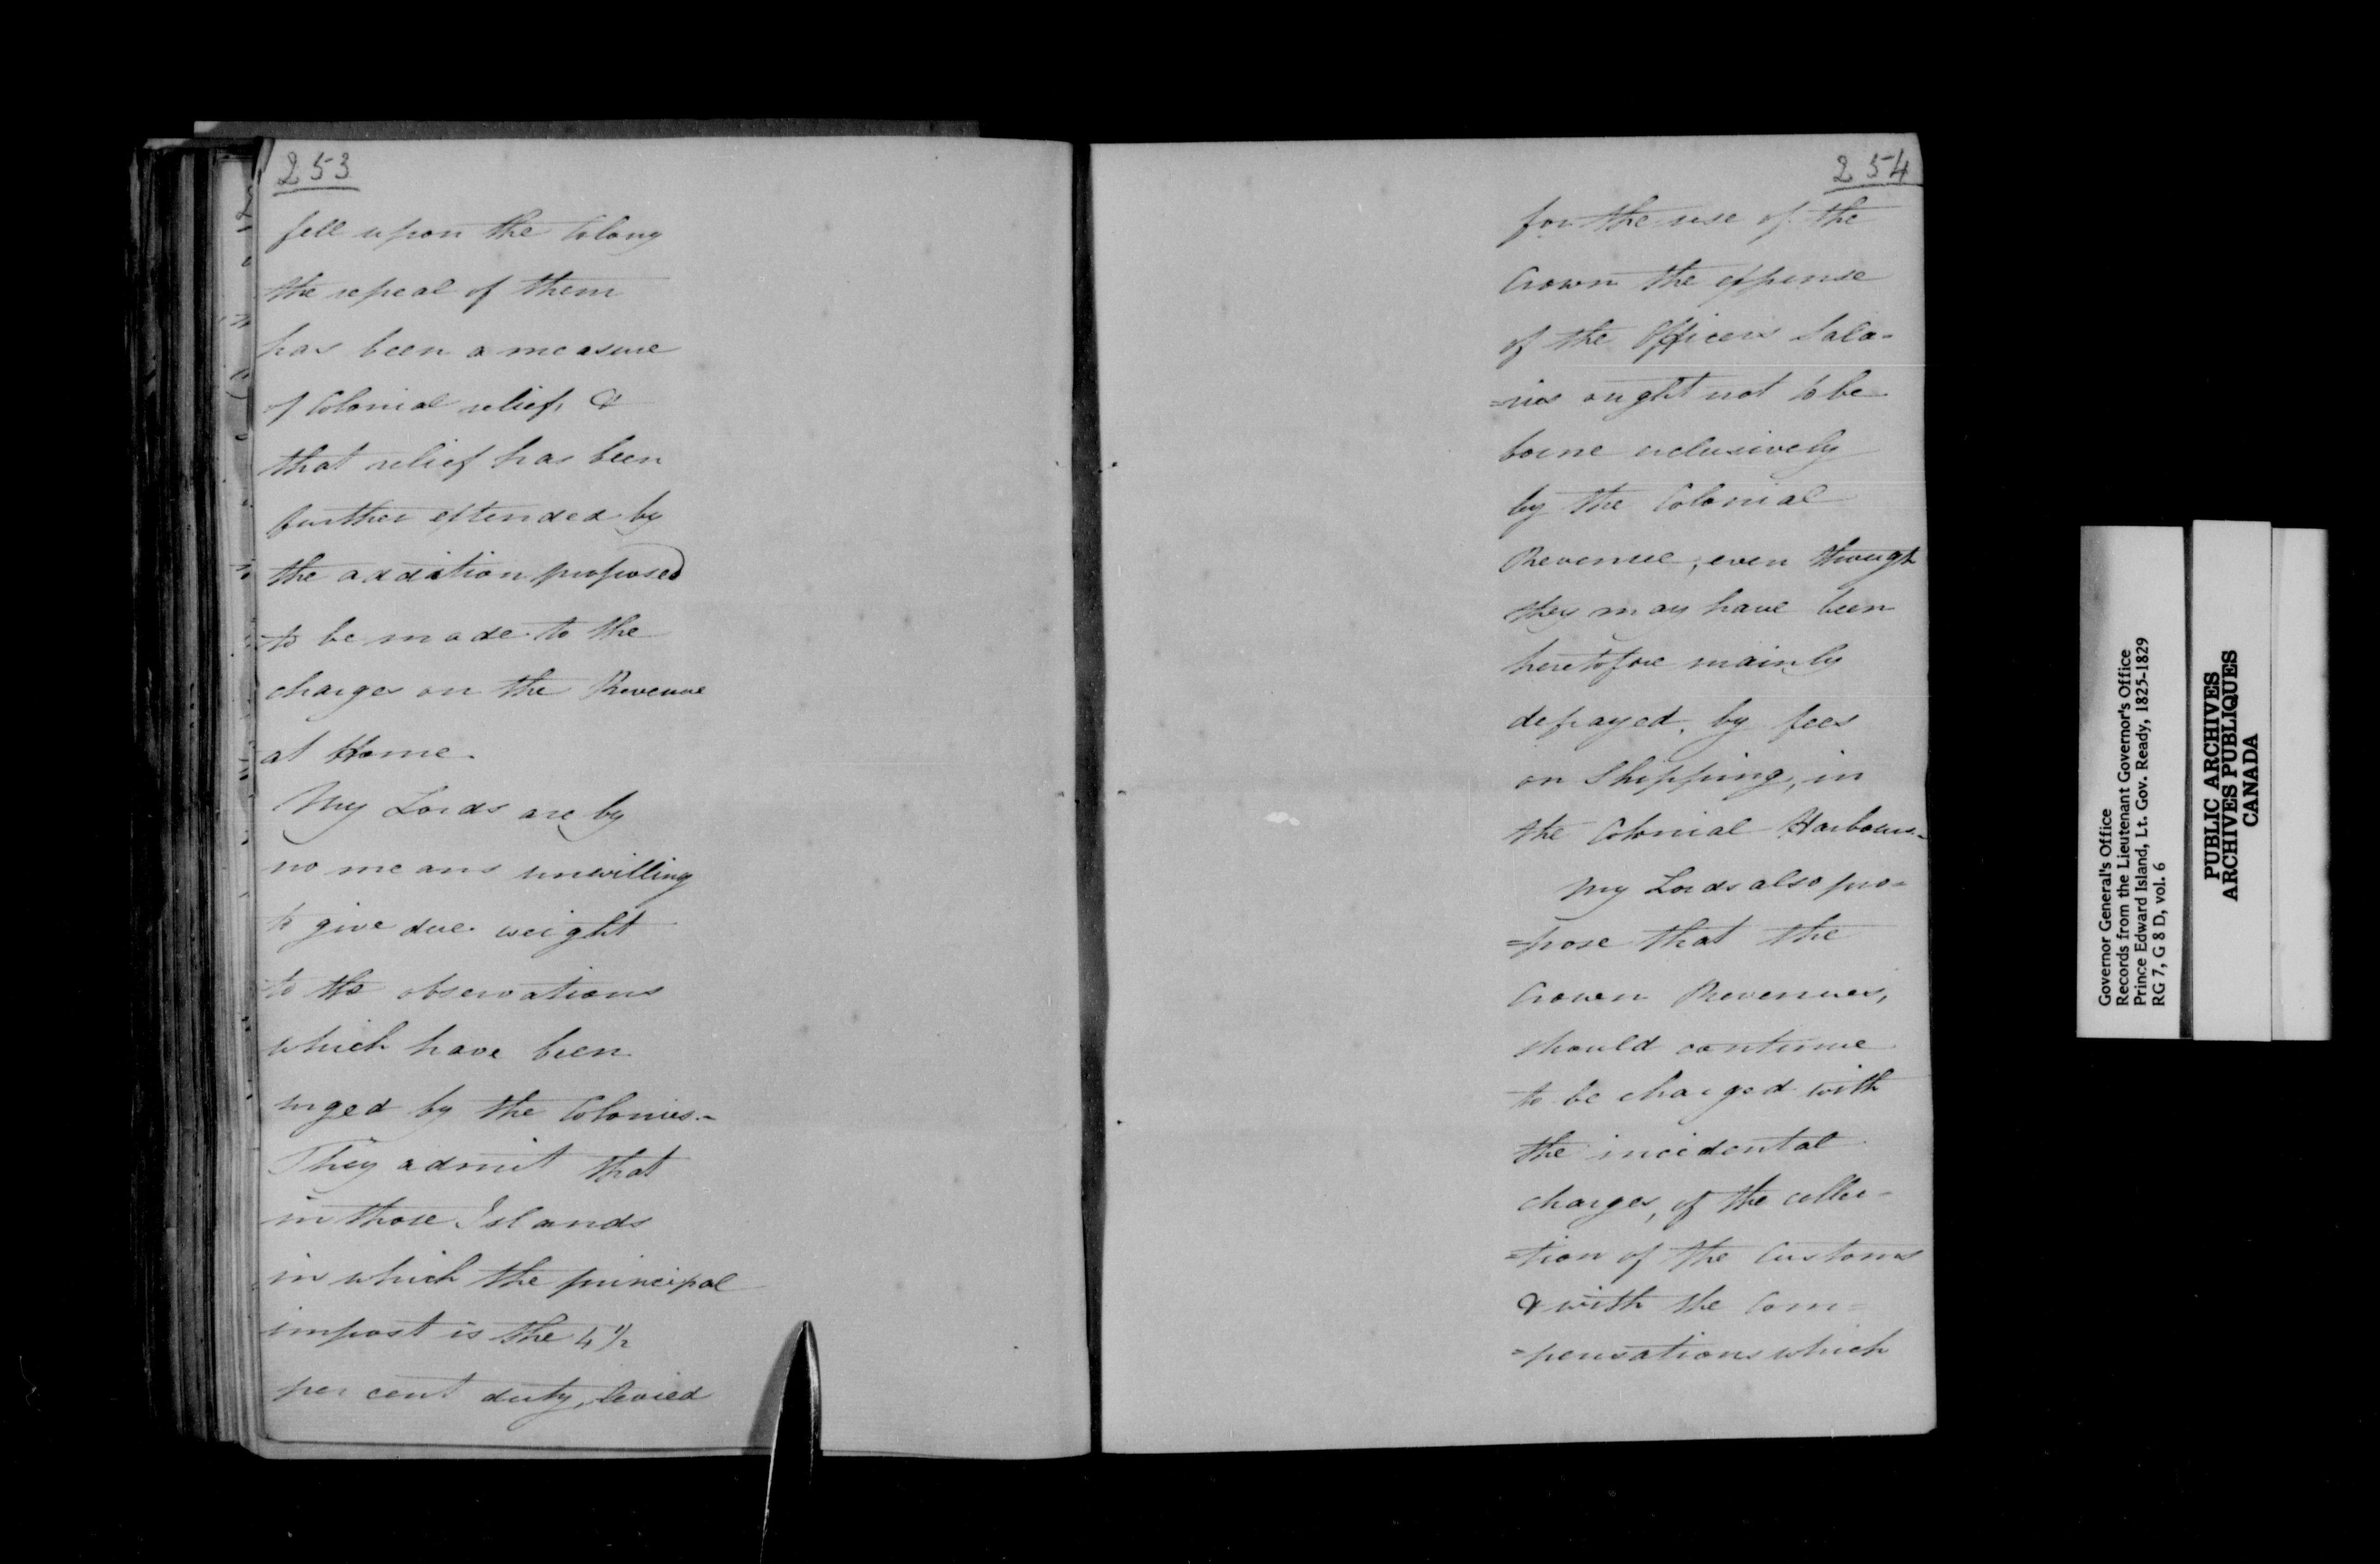 253
fell upon the Colony
the repeal of them
has been a measure
of Colonial relief, &
that relief has been
further extended by
the addition proposed
to be made to the
charges on the Revenue
at Home.
My Lords are by
no means unwilling
to give due weight
to the observations
which have been
urged by the Colonies.-
They admit that
in those Islands
in which the principal
impost is the 4 1/2
per cent duty, levied
254
for the use of the
Crown the expense
of the Officers Sala-
=ries ought not to be
borne exclusively
by the Colonial
Revenue, even though
they may have been
heretofore mainly
defrayed, by fees
on Shipping, in
the Colonial Harbours.
My Lords also pro-
=pose that the
Crown Revenues,
should continue
to be charged with
the incidental
charges, of the collec-
=tion of the Customs
& with the Com=
=pensations which
Governor General's Office
Records from the Lieutenant Governor's Office
Prince Edward Island, Lt. Gov. Ready, 1825-1829
RG 7, G 8 D, vol. 6
PUBLIC ARCHIVES
ARCHIVES PUBLIQUES
CANADA